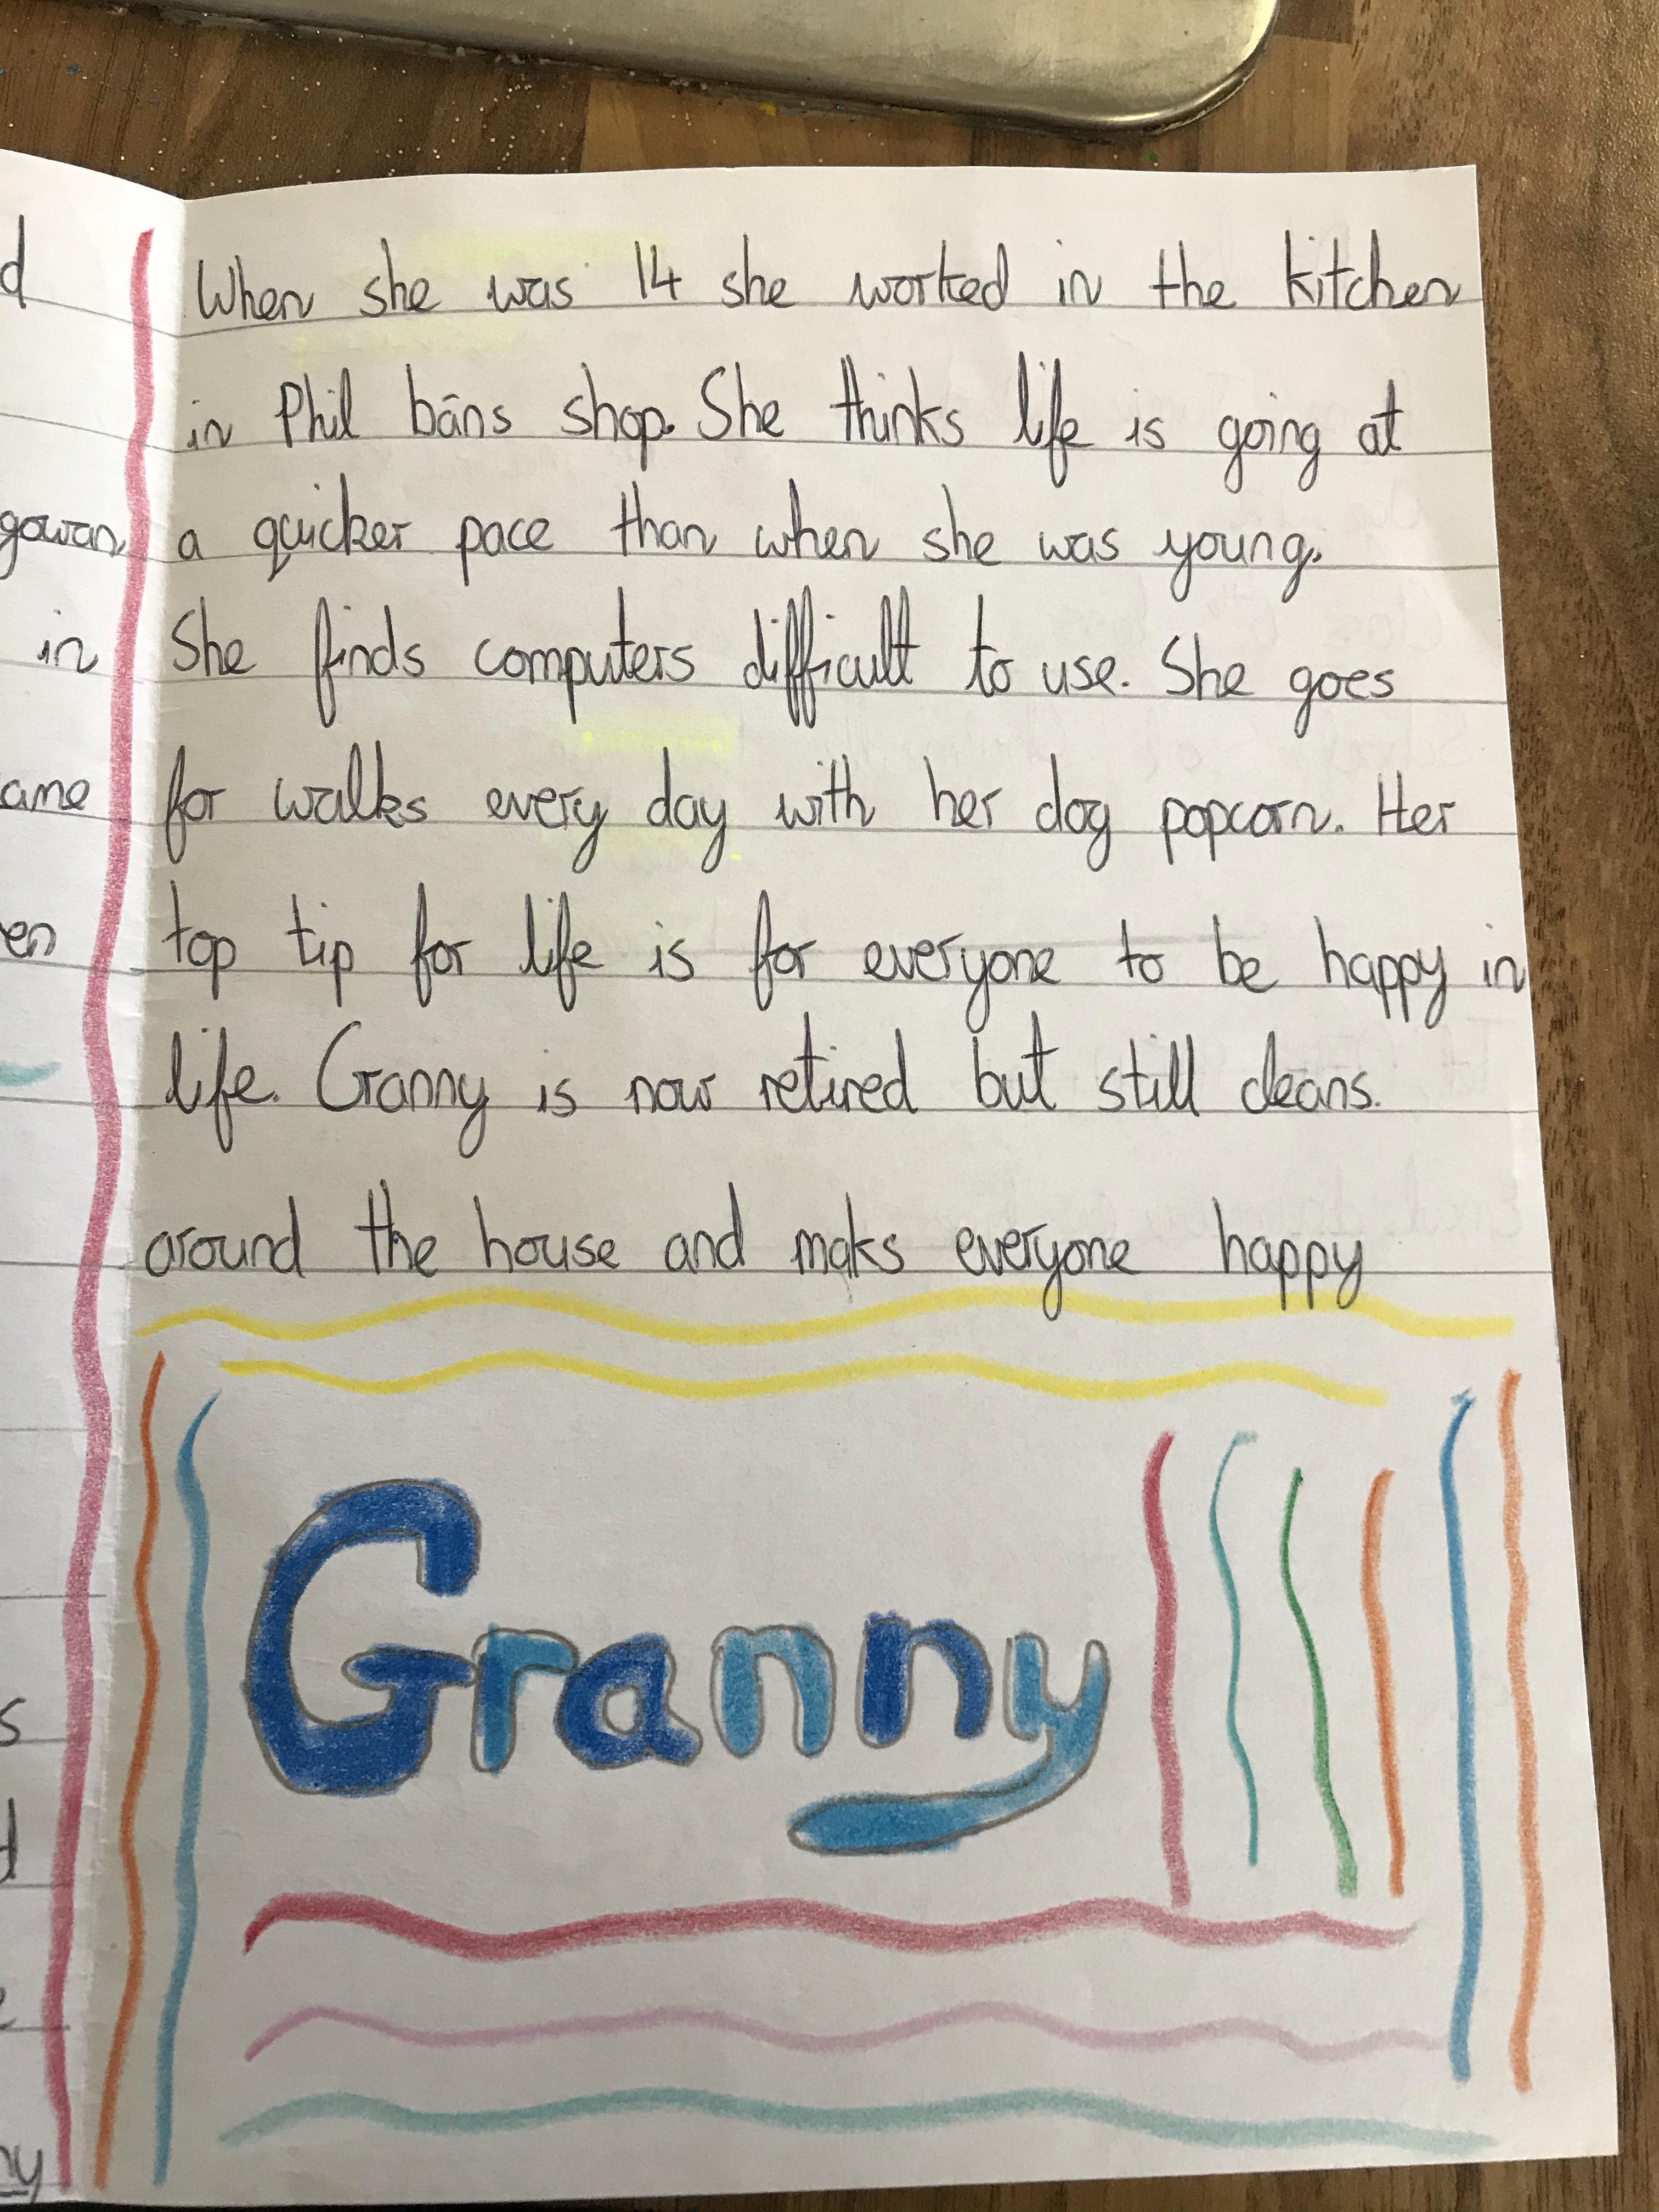 When she was 14 she worked in the kitchen
in Phil bāns shop. She thinks life is going at
a quicker pace than when she was young.
She finds computers difficult to use. She goes
for walks every day with her dog popcorn. Her
top tip for life is for everyone to be happy in
life. Granny is now retired but still cleans.
around the house and maks everyone happy
Granny
d
gowan
in
ame
en
s
d
e
ny